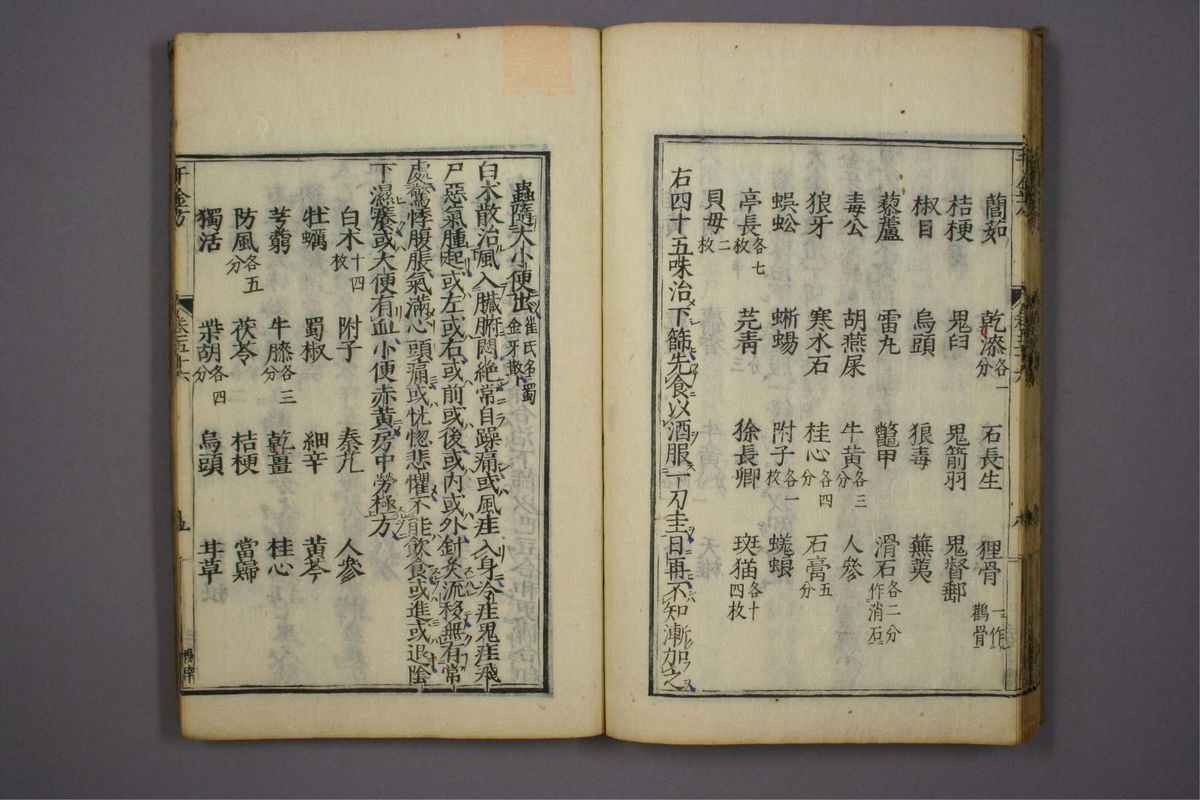 蕳茹 乾漆各一分 石長生 狸骨一作鸛骨
桔梗 鬼臼 鬼箭羽 鬼督郵
椒目 烏頭 狼毒 蕪荑
藜蘆 雷丸 鼈甲 滑石各二分作消石
毒公 胡燕屎 牛黃各三分 人參
狼牙 寒水石 桂心各四分 石膏五分
蜈蚣 蜥蜴 附子各一枚 蜣蜋
亭長各七枚 芫青三 徐長卿 斑猫各十四枚
貝母二枚
右四十五味治下篩先食以酒服一刀圭日再不知漸加之
蟲隨大小便出崔氏名蜀金牙散
白朮散治風入臟腑悶絶常自躁痛或風疰入身冷疰鬼疰飛
尸惡氣腫起或左或右或前或後或內或外針灸流移無有常
處驚悸腹脹氣滿心頭痛或恍惚悲懼不能飲食或進或退陰
下濕痿或大便有血小便赤黃房中勞極方
白朮十四枚 附子 秦艽 人參
牡蠣 蜀椒 細辛 黃芩
芎藭 牛膝各三分 乾薑 桂心
防風各五分 茯苓 桔梗 當歸
獨活 柴胡各四分 烏頭 甘草
千金方 卷五十六 五